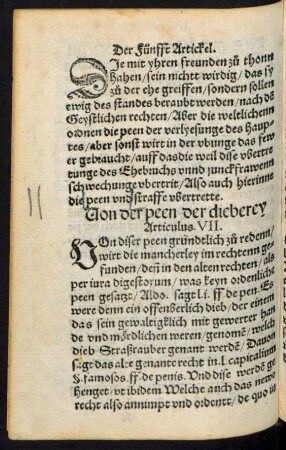 Der Fünfft Artickel.
Die mit yhren freunden zů thonn
haben/sein nichtt wirdig/das sy
zů der ehe greiffen/sondern sollen
ewig des standes beraubt werden/nach dē
Geystlichen rechten/Aber die weltlichenn
ordnen die peen der verlyesunge des haup-
tes/aber sonst wirt in der vbunge das few
er gebraucht/auff das die weil dise vbertre
tunge des Ehebruchs vnnd junckfrawenn
schwechunge vbertrit/Also auch hierinne
die peen vnd straffe vbertrette.
Von der peen der dieberey
Articulus. VII.
VOn diser peen gründtlich zů redenn/
wirt die mancherley im rechtenn ge-
funden/deß in den alten rechten/als
per iura digestorum/was keyn ordenliche
peen gesatzt/Aldo. sagt l.i. ff de pen. Es
were denn ein offenberlich dieb/der einem
das sein gewaltigklich mit gewerter han
de vnd mördlichen weren/genomē/welch
dieb Straßrauber genant werdē/Dauon
sagt das alt genant recht in.l.capitalium
§.famosos.ff.de penis. Vnd dise werdē ge
henget/vt ibidem Welche auch das newe
recht also annimpt vnd ordentt/de quo in